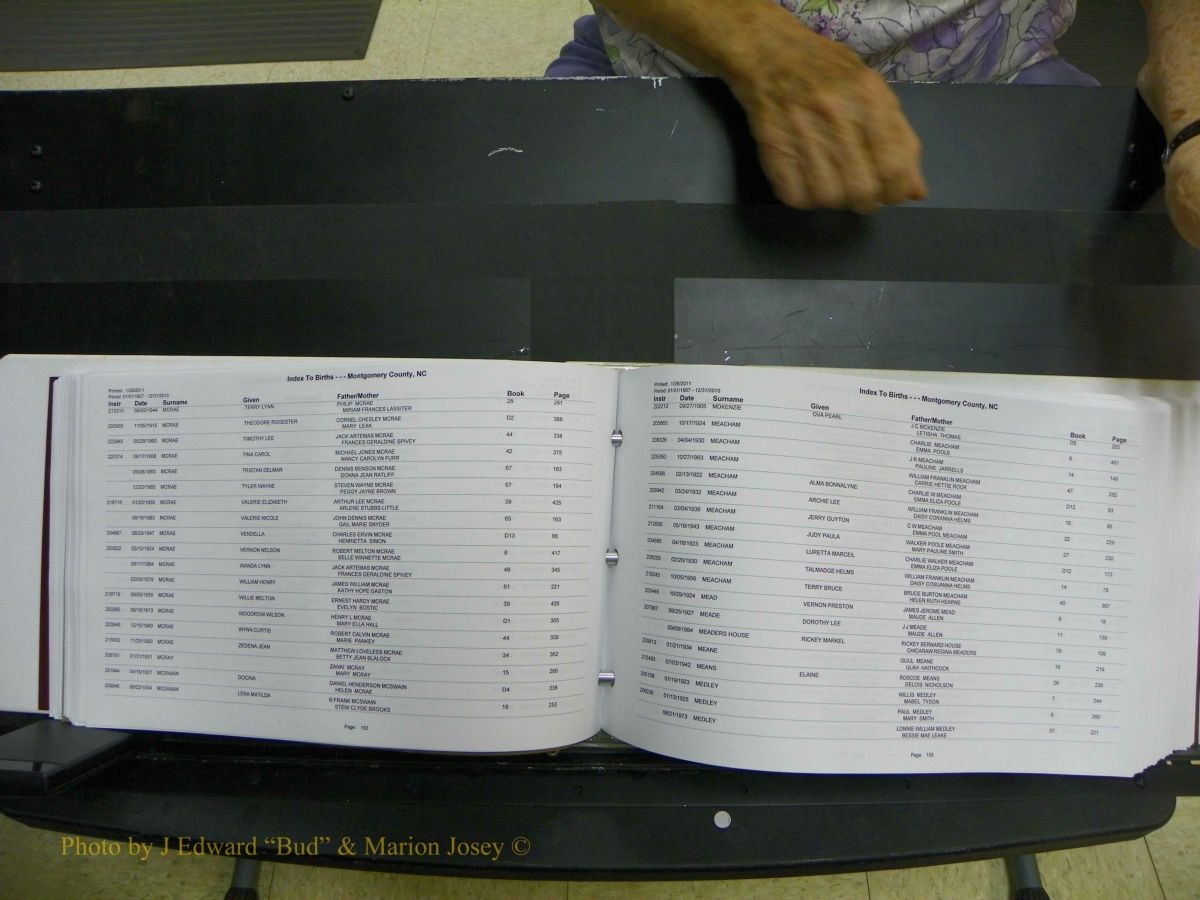 Index To Births - - - Montgomery County, NC
Printed: 1/26/2011
Period: 01/01/1867 - 12/31/2010
Instr Date Surname Given Father/Mother Book Page
213315 08/20/1944 MCRAE TERRY LYNN PHILIP MCRAE 28 281
MIRIAM FRANCES LASSITER
200865 11/05/1915 MCRAE THEODORE ROGESTER CORNEL CHESLEY MCRAE D2 369
MARY LEAK
223945 MCRAE TIMOTHY LEE JACK ARTEMAS MCRAE 44 338
FRANCES GERALDINE SPIVEY
220374 MCRAE TINA CAROL MICHAEL JONES MCRAE 42 375
NANCY CAROLYN FURR
MCRAE TRISTAN DELMAR DENNIS BENSON MCRAE 67 183
DONNA JEAN RATLIFF
MCRAE TYLER WAYNE STEVEN WAYNE MCRAE 67 184
PEGGY JAYNE BROWN
218716 MCRAE VALERIE ELIZABETH ARTHUR LEE MCRAE 39 425
ARLENE STUBBS LITTLE
MCRAE VALERIE NICOLE JOHN DENNIS MCRAE 65 163
GAIL MARIE SNYDER
204667 MCRAE VENDELLA CHARLES ERVIN MCRAE D13 88
HENRIETTA SIMON
205622 03/12/1924 MCRAE VERNON NELSON ROBERT MELTON MCRAE 8 417
BELLE WINNETTE MCRAE
06/17/1964 MCRAE WANDA LYNN JACK ARTEMAS MCRAE 48 345
FRANCES GERALDINE SPIVEY
02/05/1979 MCRAE WILLIAM HENRY JAMES WILLIAM MCRAE 61 221
KATHY HOPE GASTON
218719 09/09/1955 MCRAE WILLIE MELTON ERNEST HARDY MCRAE 39 426
EVELYN BOSTIC
MCRAE WOODROW WILSON HENRY L MCRAE D1 365
MARY ELLA HALL
223946 12/15/1960 MCRAE WYNN CURTIS ROBERT CALVIN MCRAE 44 339
MARIE PANKEY
215832 11/25/1950 MCRAE ZEDENA JEAN MATTHEW LOVELESS MCRAE 34 362
BETTY JEAN BLALOCK
01/21/1931 MCRAY ZANKI MCRAY 15 266
MARY MCRAY
201844 04/19/1921 MCSWAIN DOCINA DANIEL HENDERSON MCSWAIN D4 338
HELEN MCRAE
209846 06/02/1934 MCSWAIN LENA MATILDA B FRANK MCSWAIN 18 252
STENI CLYDE BROOKS
Page 152
Printed: 1/26/2011
Period: 01/01/1867 - 12/31/2010
Index To Births - - - Montgomery County, NC
Instr Date Surname Given Father/Mother Book Page
202212 09/27/1905 MCKENZIE OVA PEARL J C MCKENZIE D5 265
LETISHA THOMAS
205865 10/17/1924 MEACHAM CHARLIE MEACHAM 8 461
EMMA POOLE
208326 04/04/1930 MEACHAM J R MEACHAM 14 149
PAULINE JARRELLS
226350 10/27/1963 MEACHAM WILLIAM FRANKLIN MEACHAM 47 252
CARRIE HETTIE ROOK
204596 02/13/1922 MEACHAM ALMA BONNALYNE CHARLIE W MEACHAM D12 83
EMMA ELIZA POOLE
208942 03/24/1932 MEACHAM ARCHIE LEE WILLIAM FRANKLIN MEACHAM 16 86
DAISY CORANNA HELMS
211164 03/04/1938 MEACHAM JERRY GUYTON C W MEACHAM 22 229
EMMA POOL MEACHAM
212690 06/19/1943 MEACHAM JUDY PAULA WALKER POOLE MEACHAM 27 230
MARY PAULINE SMITH
204686 04/18/1923 MEACHAM LURETTA MARCEIL CHARLIE WALKER MEACHAM D12 173
EMMA ELIZA POOLE
208255 02/20/1930 MEACHAM TALMADGE HELMS WILLIAM FRANKLIN MEACHAM 14 78
219245 10/05/1956 MEACHAM TERRY BRUCE BRUCE BURTON MEACHAM 40 367
HELEN RUTH HEARNE
205446 10/29/1924 MEAD VERNON PRESTON JAMES JEROME MEAD 8 18
MAUDE ALLEN
207067 09/25/1927 MEADE DOROTHY LEE J J MEADE 11 139
MAUDE ALLEN
09/09/1994 MEADERS HOUSE RICKEY MARKEL RICKEY BERNARD HOUSE 76 106
CHICARAW REGINA MEADERS
01/21/1934 MEANE GUUL MEANE 18 219
ULAH HAITHCOCK
212493 07/03/1942 MEANS ELAINE ROSCOE MEANS 26 226
DELOIS NICHOLSON
205158 01/19/1923 MEDLEY WILLIS MEDLEY 7 244
MABEL TYSON
206236 01/13/1925 MEDLEY PAUL MEDLEY 9 280
MARY SMITH
08/21/1973 MEDLEY LONNIE WILLIAM MEDLEY 57 221
BESSIE MAE LEAKE
Page 153
Photo by J Edward “Bud” & Marion Josey ©